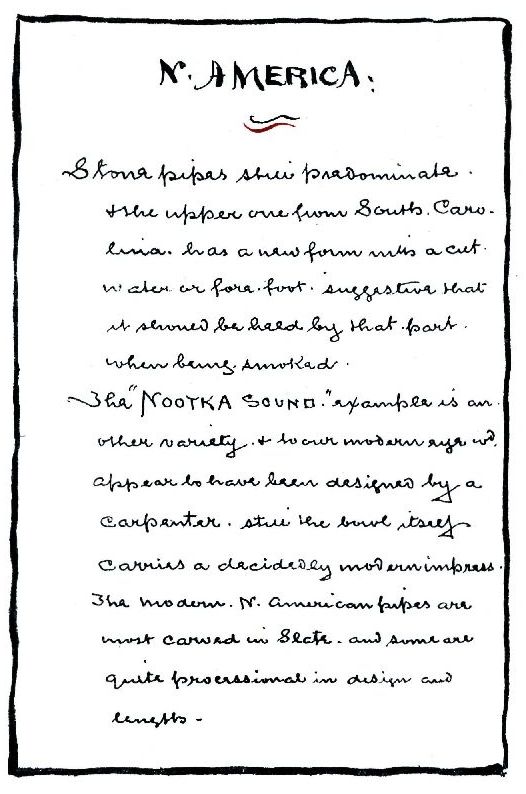 N. AMERICA.
Stone pipes still predominate.
& the upper one from South. Caro-
lina. has a new form with a cut.
water or fore.foot. suggestive that
it should be held by that.part.
when being.smoked.
The "NOOTKA SOUND." example is an.
other variety. & to our modern eye wd.
appear to have been designed by a
carpenter. still the bowl itself
carries a decidedly modern impress.
The modern. N. American pipes are
most carved in Slate. and some are
quite processional in design and
length -